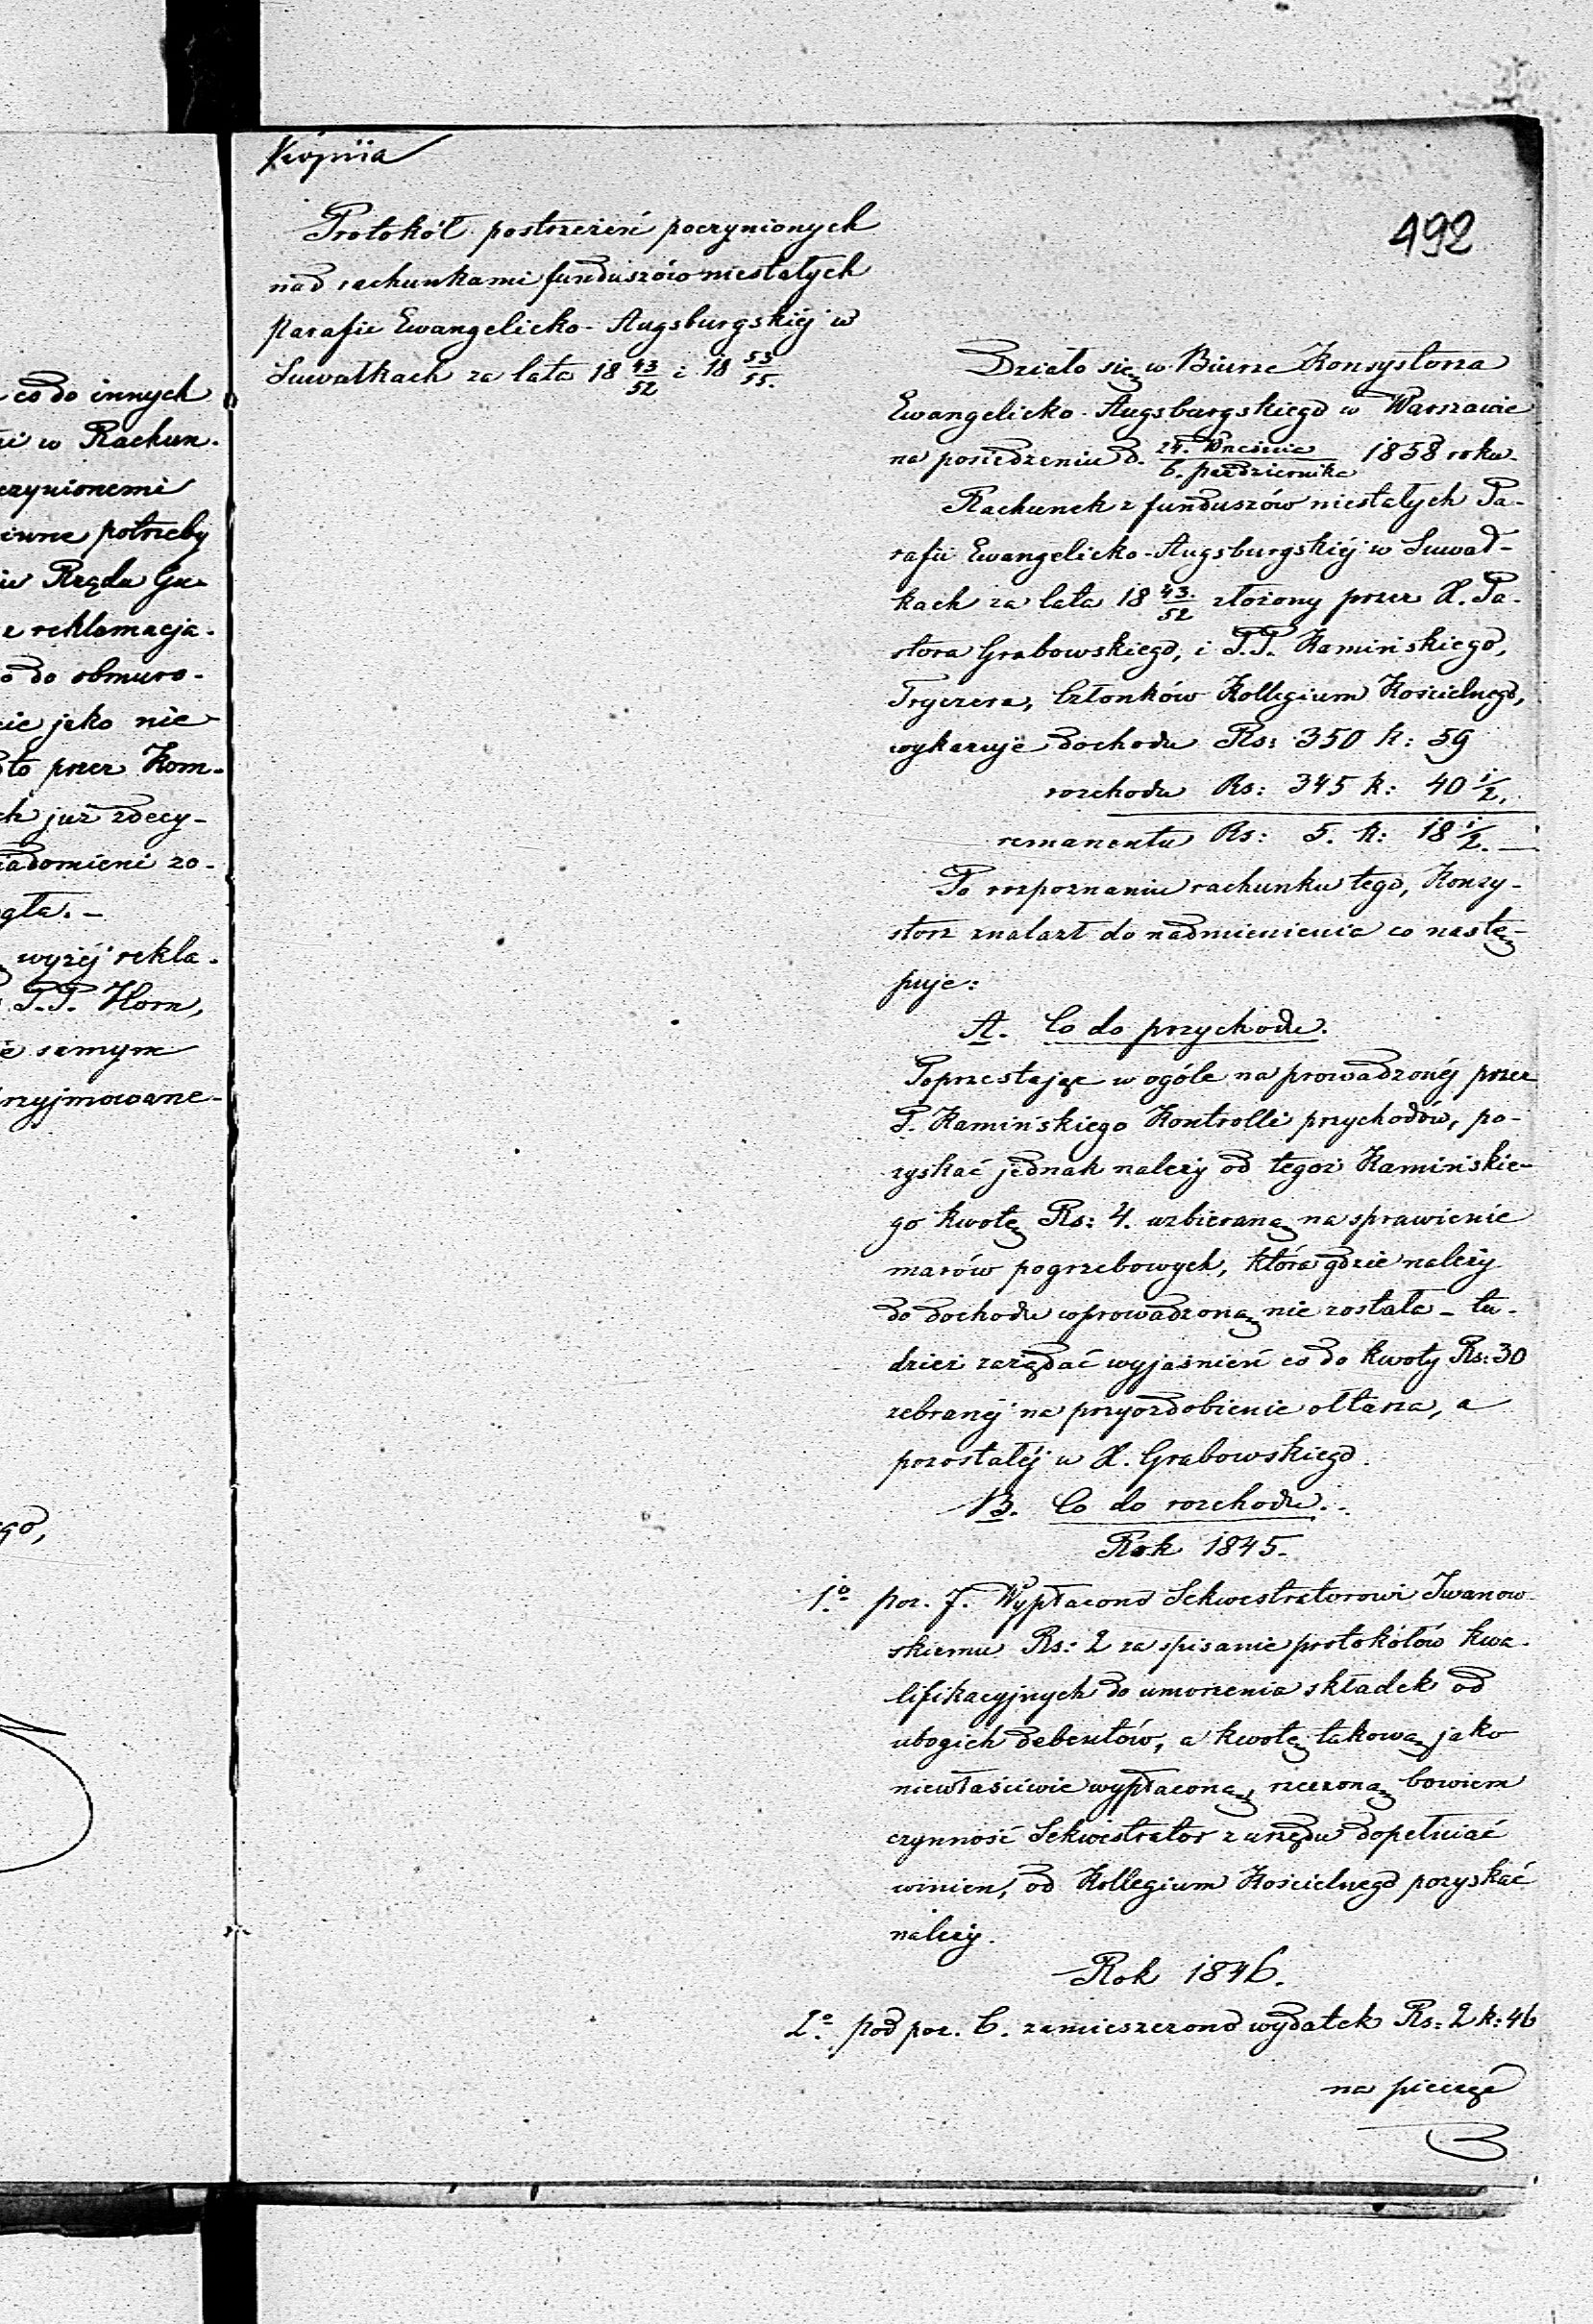 co do innych
w Rachun-
czynionemi
inne potrzeby
Rządu Gu-
z reklamacja-
do obmuro-
jako nie
przez Kom-
już zdecy-
iadomieni zo-
gła. –
wyżéj rekla-
P.P. Horn,
samym
przyjmowane-
go,
Kopiia
Protokół postrzeżeń poczynionych
nad rachunkami funduszów niestałych
parafii Ewangelicko-Augsburgskiéj w
Suwałkach za lata 18 43/52 i 18 53/55.
492
Działo się w Biurze Konsystorza
Ewangelicko-Augsburgskiego w Warszawie
na posiedzeniu d. 24. Września / 6. października 1858 roku.
Rachunek z funduszów niestałych Pa-
rafii Ewangelicko-Augsburgskiéj w Suwał-
kach za lata 18 43./52 złożony przez X. Pa-
stora Grabowskiego, i P.P. Kamińskiego,
Tryczera, Członków Kollegium Kościelnego,
wykazuje dochodu Rs: 350 k: 59
rozchodu Rs: 345 k: 40 1/2.
remanentu Rs: 5. k: 18 1/2. –
Po rozpoznaniu rachunku tego, Konsy-
storz znalazł do nadmienienia co nastę-
puje:
A. Co do przychodu.
Poprzestając w ogóle na prowadzonéj przez
P. Kamińskiego Kontrolli przychodów, po-
zyskać jednak należy od tegoż Kamińskie-
go kwotę Rs: 4. uzbieraną na sprawienie
marów pogrzebowych, która gdzie należy
do dochodu wprowadzoną nie została – tu-
dzież zażądać wyjaśnień co do kwoty Rs: 30
zebranéj na przyozdobienie ołtarza, a
pozostałéj u X. Grabowskiego.
B. Co do rozchodu.
Rok 1845.
1.o poz. 7. Wypłacono Sekwestratorowi Iwanow-
skiemu Rs: 2 za spisanie protokółów kwa-
lifikacyjnych do umorzenia składek od
ubogich debentów, a kwotę takową jako
niewłaściwie wypłaconą, rzeczoną bowiem
czynność Sekwestrator z urzędu dopełniać
winien, od Kollegium Kościelnego pozyskać
należy.
Rok 1846.
2.o pod poz. 6. zamieszczono wydatek Rs: 2 k: 46
na pieczęć